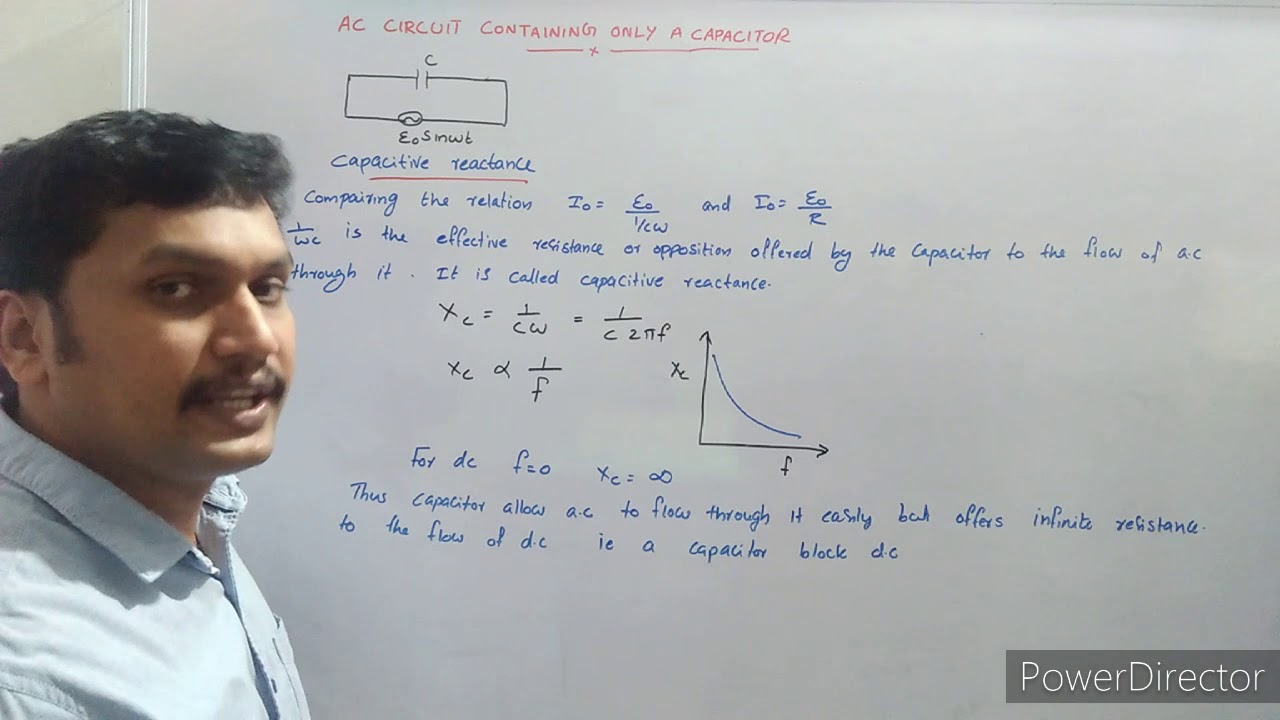 AC CIRCUIT CONTAINING ONLY A CAPACITOR
x
C
ε₀ sinωt
Capacitive reactance
Compairing the relation I₀ = ε₀/(1/cω) and I₀ = ε₀/R
1/ωc is the effective resistance or opposition offered by the capacitor to the flow of a.c
through it. It is called capacitive reactance.
X_c = 1/cω = 1/c 2πf
X_c ∝ 1/f
X_c
f
For dc f=0 X_c = ∞
Thus capacitor allow a.c to flow through it easily but offers infinite resistance.
to the flow of d.c ie a capacitor block d.c
PowerDirector